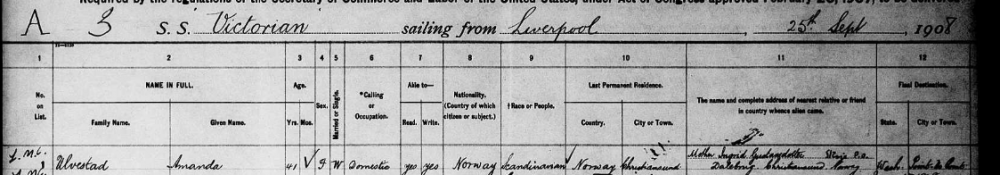 Required by the regulations of the Secretary of Commerce and Labor of the United States, under Act of Congress approved February 20, 1907, to be delivered
A 3 S. S. Victorian sailing from Liverpool, 25th Sept, 1908
1 2 3 4 5 6 7 8 9 10 11 12
No. on List.
NAME IN FULL.
Family Name. Given Name.
Age.
Yrs. Mos.
Sex.
Married or Single.
*Calling or Occupation.
Able to—
Read. Write.
Nationality. (Country of which citizen or subject.)
†Race or People.
Last Permanent Residence.
Country. City or Town.
The name and complete address of nearest relative or friend in country whence alien came.
Final Destination.
State. City or Town.
Mother Ingrid
1 Ulvestad Amanda 41 F W Domestic yes yes Norway Scandinavian Norway Christiansund